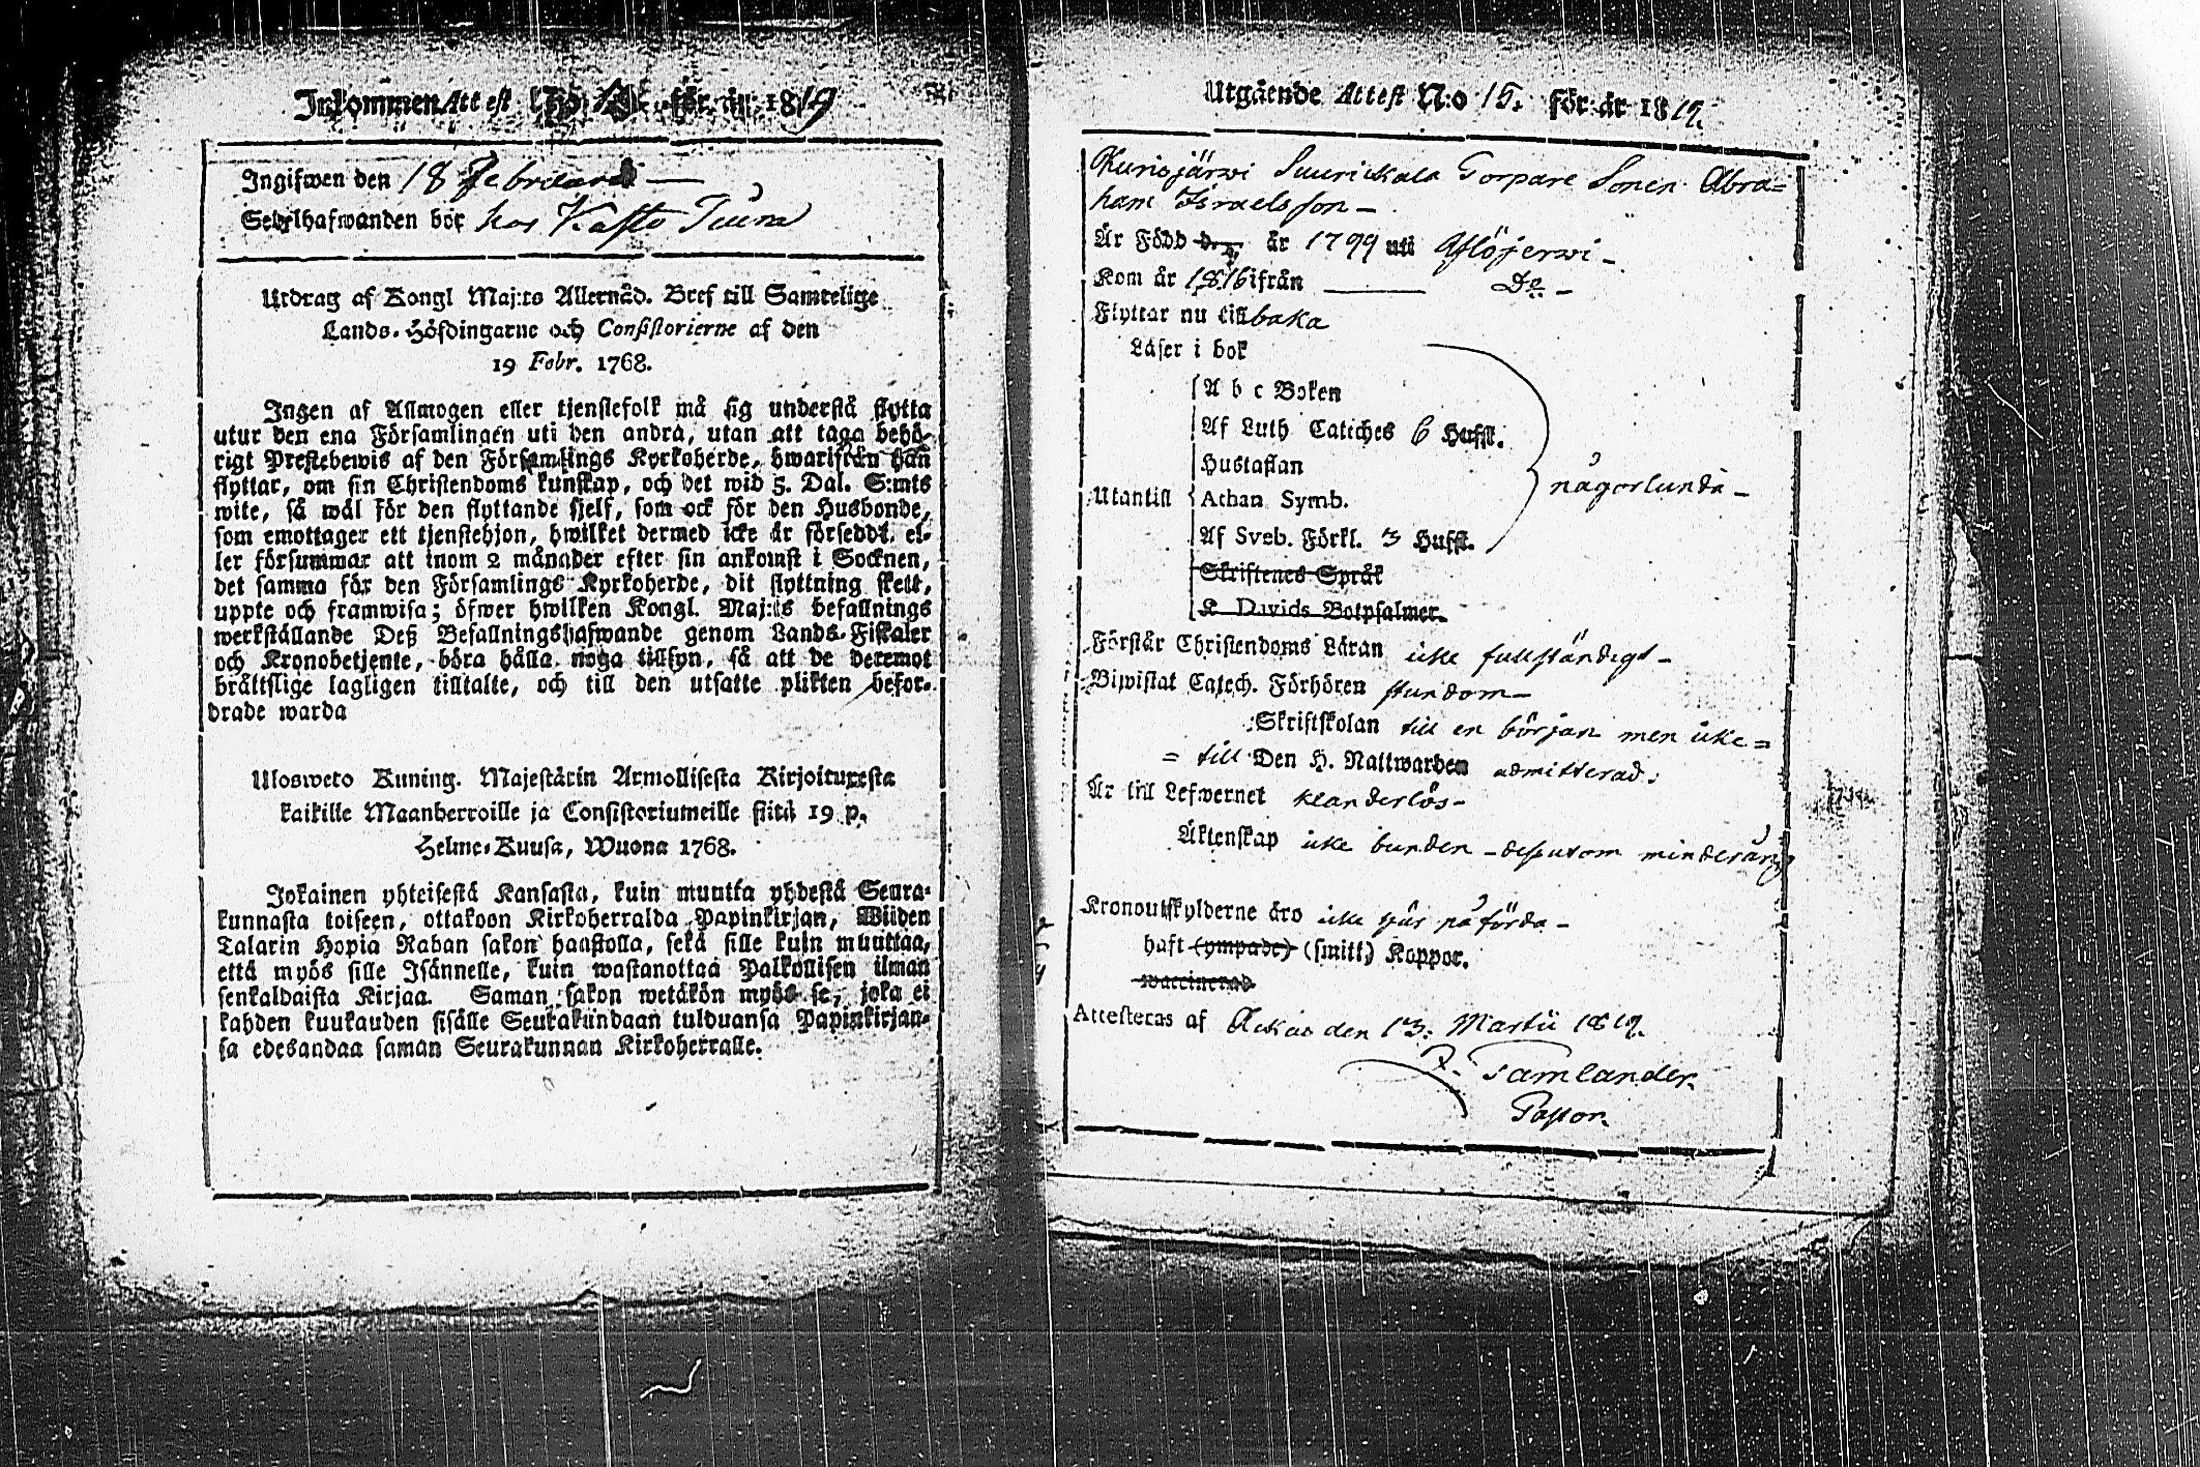 Inkommen Attest för år 1819
Ingifwen den 18 Februari
Sedelhafwanden bor hos Kasto Tuura
Utdrag af Kongl Maj:ts Allernåd. Bref till Samtelige
Lands-Höfdingarne och Consistorierne af den
19 Febr. 1768.
Ingen af Allmogen eller tjenstefolk må sig understå flytta
utur den ena Församlingen uti den andra, utan att taga behö-
rigt Prestebewis af den Församlings Kyrkoherde, hwarifrån han
flyttar, om sin Christendoms kunskap, och det wid 5. Dal. S:mts
wite, så wäl för den flyttande sjelf, som ock för den Husbonde,
som emottager ett tjenstehjon, hwilket dermed icke är förseddt, el-
ler försummar att inom 2 månader efter sin ankomst i Socknen,
det samma för den Församlings Kyrkoherde, dit flyttning skett,
uppte och framwisa; öfwer hwilken Kongl. Maj:ts befallnings
werkställande Deß Befallningshafwande genom Lands-Fiskaler
och Kronobetjente, böra hålla noga tillsyn, så att de deremot
bråttslige lagligen tilltalte, och till den utsatte plikten befor-
drade warda
Ulosweto Kuning. Majestätin Armollisesta Kirjoituxesta
kaikille Maanherroille ja Consistoriumeille siitä 19 p.
Helme-Kuusa, Wuona 1768.
Jokainen yhteisestä Kansasta, kuin muutta yhdestä Seura-
kunnasta toiseen, ottakoon Kirkoherralda Papinkirjan, Wiiden
Talarin Hopia Rahan sakon haastolla, sekä sille kuin muuttaa,
että myös sille Isännelle, kuin wastanottaa Palkollisen ilman
senkaldaista Kirjaa. Saman sakon wetäkön myös se, joka ei
kahden kuukauden sisälle Seurakundaan tulduansa Papinkirjan-
sa edesandaa saman Seurakunnan Kirkoherralle.
Utgående Attest N:o 15. för år 1819.
Kurisjärwi Suurickala Torpare Sonen Abra=
ham Israelsson
Är Född d. år 1799 uti Aflöjerwi
Kom år 1816 ifrån Do
Flyttar nu tillbaka
Läser i bok
A b c Boken
Af Luth Catiches 6 Hufst.
Hustaflan
Utantill Athan Symb. någorlunda
Af Sveb. Förkl. 3 Hufst.
Skriftenes Språk
K Davids Botpsalmer.
Förstår Christendoms Läran icke fullständigt
Biwistat Catech. Förhören stundom
Skriftskolan till en början men icke =
= till Den H. Nattwarden admitterad.
Är till Lefwernet klanderlös
Äktenskap icke bunden dessutom minderårig
Kronoutskylderne äro icke här påförda
haft (ympade) (smitt.) Koppor.
waccinerad
Attesteras af Ackas den 13. Martii 1819.
Tamlander
Pastor.